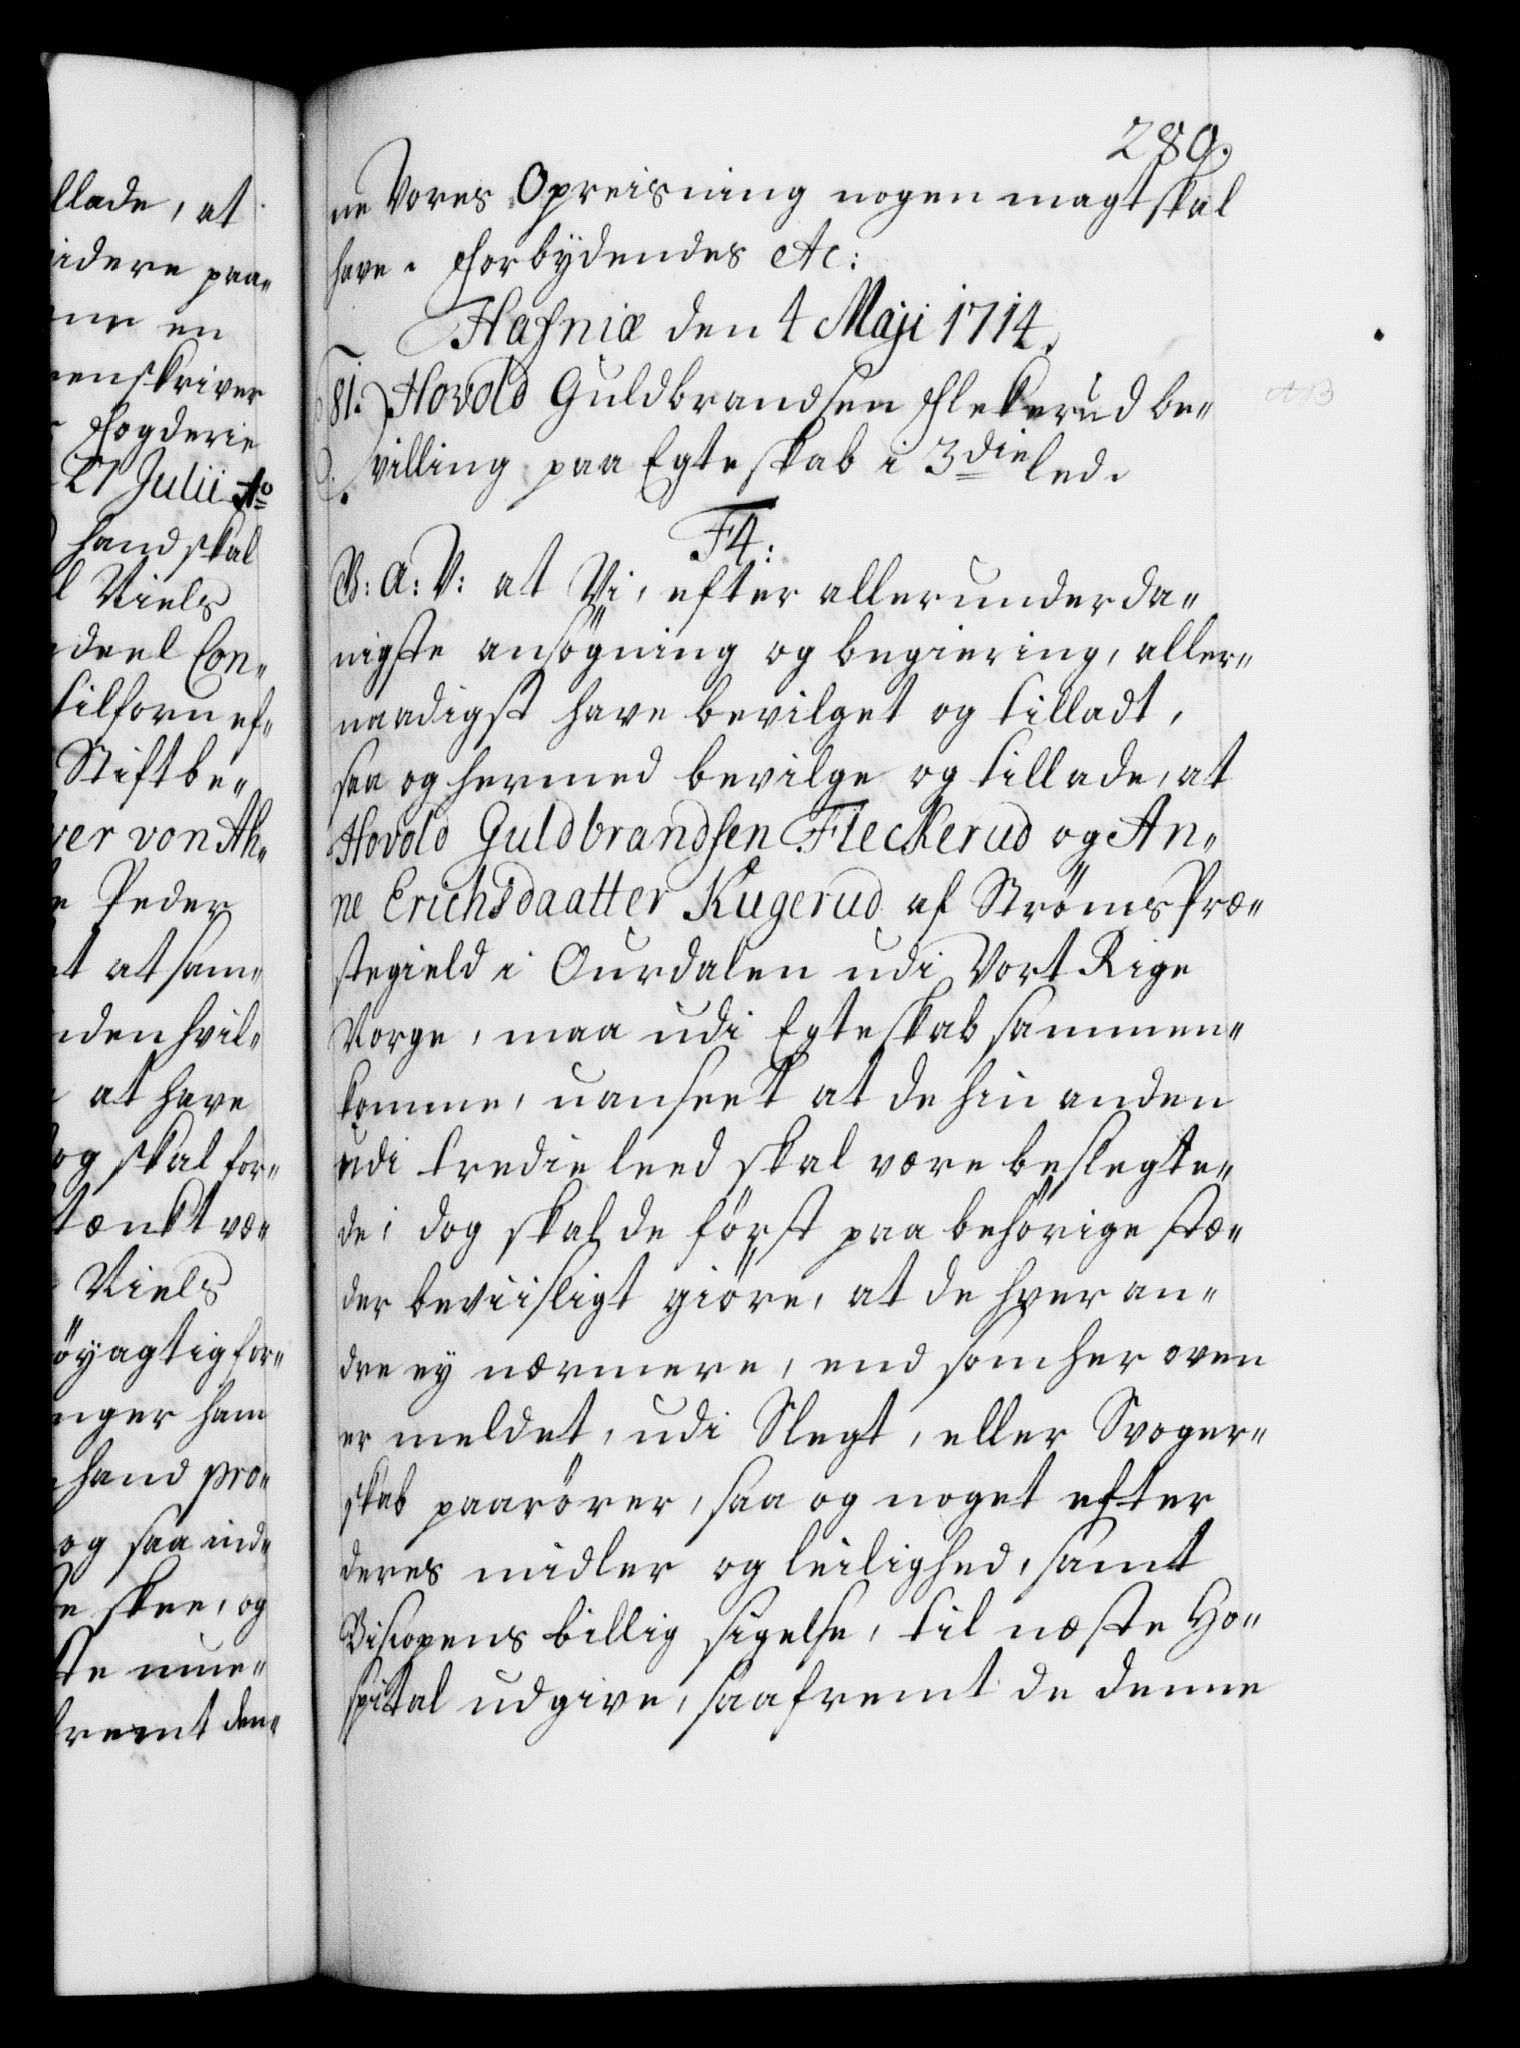 280.
ne Vores Opreisning nogen magt skal
have. Forbÿdendes Ac:
Hafniæ den 4 Maji 1714.
81. Hovold Guldbrandsen Flekerud be-
villing paa Egteskab i 3die led.
F4:
V: A: V: at Vi, efter allerunderda-
nigste ansögning og begiering, aller-
naadigst have bevilget og tilladt,
saa og hermed bevilge og tillade, at
Hovold Guldbrandsen Fleckerud og An-
ne Erichsdaatter Kugerud af Ströms Præ-
stegield i Ourdalen udi Vort Rige
Norge, maa udi Egteskab sammen-
komme, uanseet at de hin anden
udi tredie leed skal være beslegte-
de; dog skal de först paa behörige stæ-
der beviisligt giöre, at de hver an-
dre ey nærmere, end som her oven
er meldet, udi Slegt, eller Svoger-
skab paarörer, saa og noget efter
deres midler og leilighed, samt
Biscopens billig sigelse, til næste Ho-
spital udgive, saafremt de denne
llade, at
idere paa-
en
enskriver
Fogderie
27 Julii Ao
hand skal
Niels
deel Con-
tilforn ef-
Stiftbe-
ver von Ah-
Peder
at sam-
nden hvil-
at have
og skal for-
tænkt væ-
Niels
öyagtig for-
nger ham
hand pro-
og saa ind-
skee, og
te nue-
fremt den-